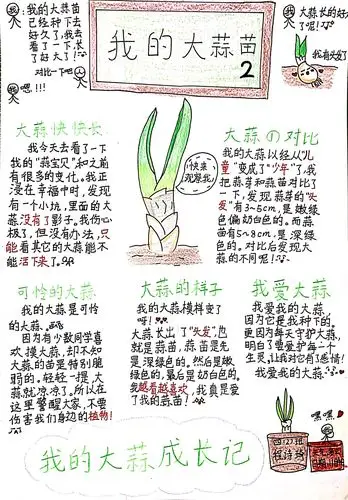 我:我的大蒜苗
已经种下去
好久了,我去
看了一下,长
了好大了!
对比一下吧
我嗯!!!
我的大蒜苗
2
我大蒜长的好大
了呢!
我有头发了
大蒜快快长
我今天去看了一下
我的“蒜宝贝”和之前
有很多的变化。我正
浸在幸福中时,发现
有一个小坑,里面的大
蒜没有了影子。我伤心
极了,但没有办法,只
能看其它的大蒜能不
能活下来了。
快来
观察我!
大蒜の对比
我的大蒜以经从“儿
童”变成了“少年”了,我
把蒜芽和蒜苗对比了
一下,发现蒜芽的“头
发”有3~5cm,是嫩绿
色偏奶白色的。而蒜
苗有5~8cm,是深绿
色的。对比后发现大
蒜的不同呢!
可怜的大蒜
我的大蒜是可怜
的大蒜。
因为有少数同学喜
欢摸大蒜,却不知
大蒜的苗是特别脆
弱的。轻轻一提,大
蒜就凉凉了。所以在
这里警醒大家,不要
伤害我们身边的植物!
大蒜的样子
我的大蒜模样变了
呀!
大蒜长出了“头发”也
就是蒜苗,蒜苗是先
是深绿色的。然后是嫩
绿色的,最后是奶白色的。
我越看越喜欢,我真是爱
了我的蒜苗!
我爱大蒜
我爱我的大蒜,
因为它是我种下的。
更因为每天守护大蒜,
明白了需爱护每一个
生灵,让我对它有了感情!
我爱我的大蒜
嘿嘿
我的大蒜成长记